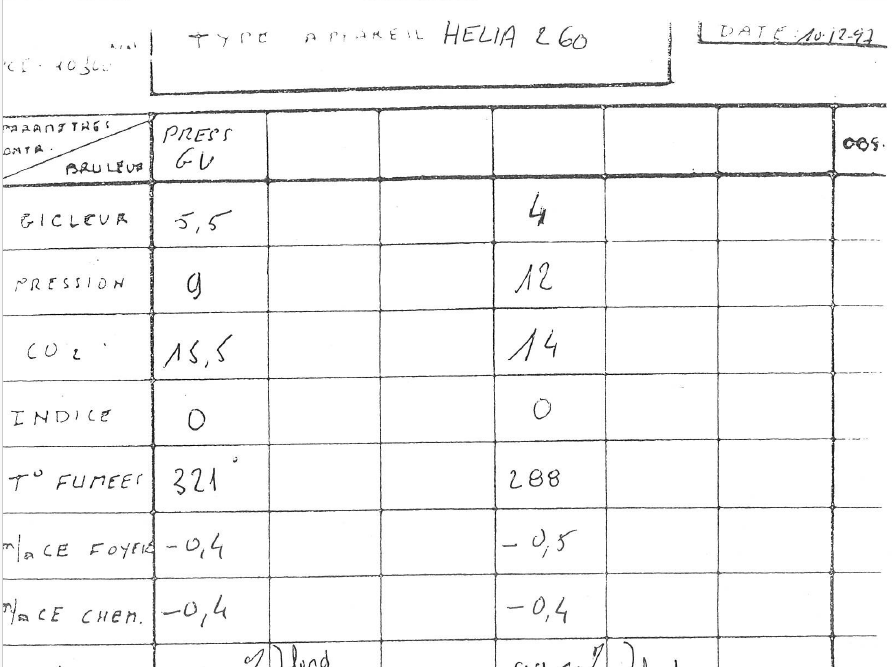 TYPE APPAREIL HELIA 260
DATE: 10-12-97
PARAMETRES
BRULEUR
PRESS
GV
OBS.
GICLEUR 5,5 4
PRESSION 9 12
CO2 15,5 14
INDICE 0 0
T° FUMEES 321° 288
CE FOYER -0,4 -0,5
CE CHEM. -0,4 -0,4